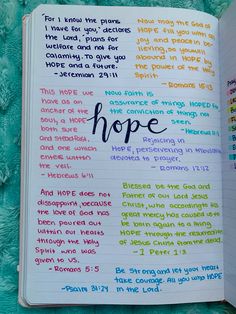 "For I know the plans
I have for you," declares
the Lord, "plans for
welfare and not for
calamity. To give you
HOPE and a future.
- Jeremiah 29:11
Now may the God of
HOPE fill you with all
joy and peace in be-
lieving, so you will
abound in HOPE by
the power of the Holy
Spirit
- Romans 15:13
This HOPE we
have as an
anchor of the
soul, a HOPE
both sure
and steadfast,
and one which
enters within
the veil.
- Hebrews 6:19
Now faith is
assurance of things HOPED for
the conviction of things not
seen.
- Hebrews 11:1
hope
Rejoicing in
HOPE, persevering in tribulation
devoted to prayer.
- Romans 12:12
And HOPE does not
disappoint, because
the love of God has
been poured out
within our hearts
through the Holy
Spirit who was
given to us.
- Romans 5:5
Blessed be the God and
Father of our Lord Jesus
Christ, who according to his
great mercy has caused us to
be born again to a living
HOPE through the resurrection
of Jesus Christ from the dead.
- 1 Peter 1:3
Be strong and let your heart
take courage. All you who HOPE
in the Lord.
- Psalm 31:24